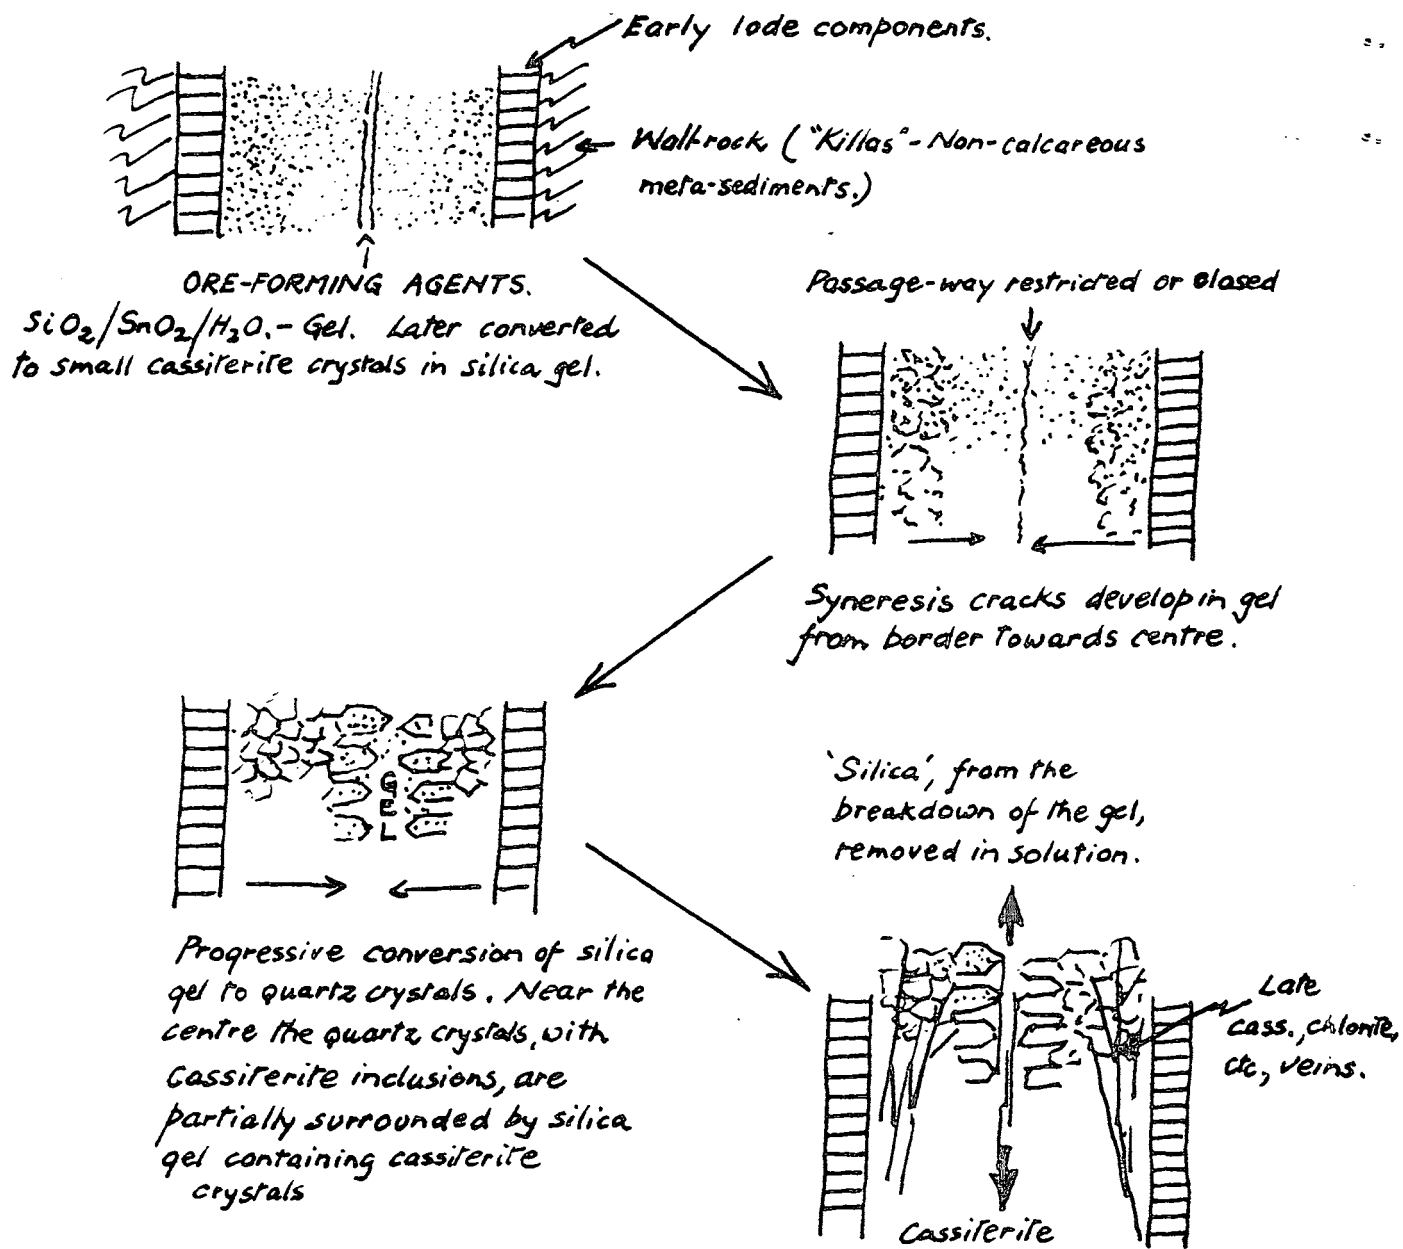 Early lode components.
Wallrock ("Killas" - Non-calcareous
meta-sediments.)
ORE-FORMING AGENTS.
SiO₂/SnO₂/H₂O. - Gel. Later converted
to small cassiterite crystals in silica gel.
Passage-way restricted or closed
Syneresis cracks develop in gel
from border towards centre.
G
E
L
Progressive conversion of silica
gel to quartz crystals. Near the
centre the quartz crystals, with
cassiterite inclusions, are
partially surrounded by silica
gel containing cassiterite
crystals
'Silica', from the
breakdown of the gel,
removed in solution.
Late
cass., chlorite,
etc., veins.
Cassiterite